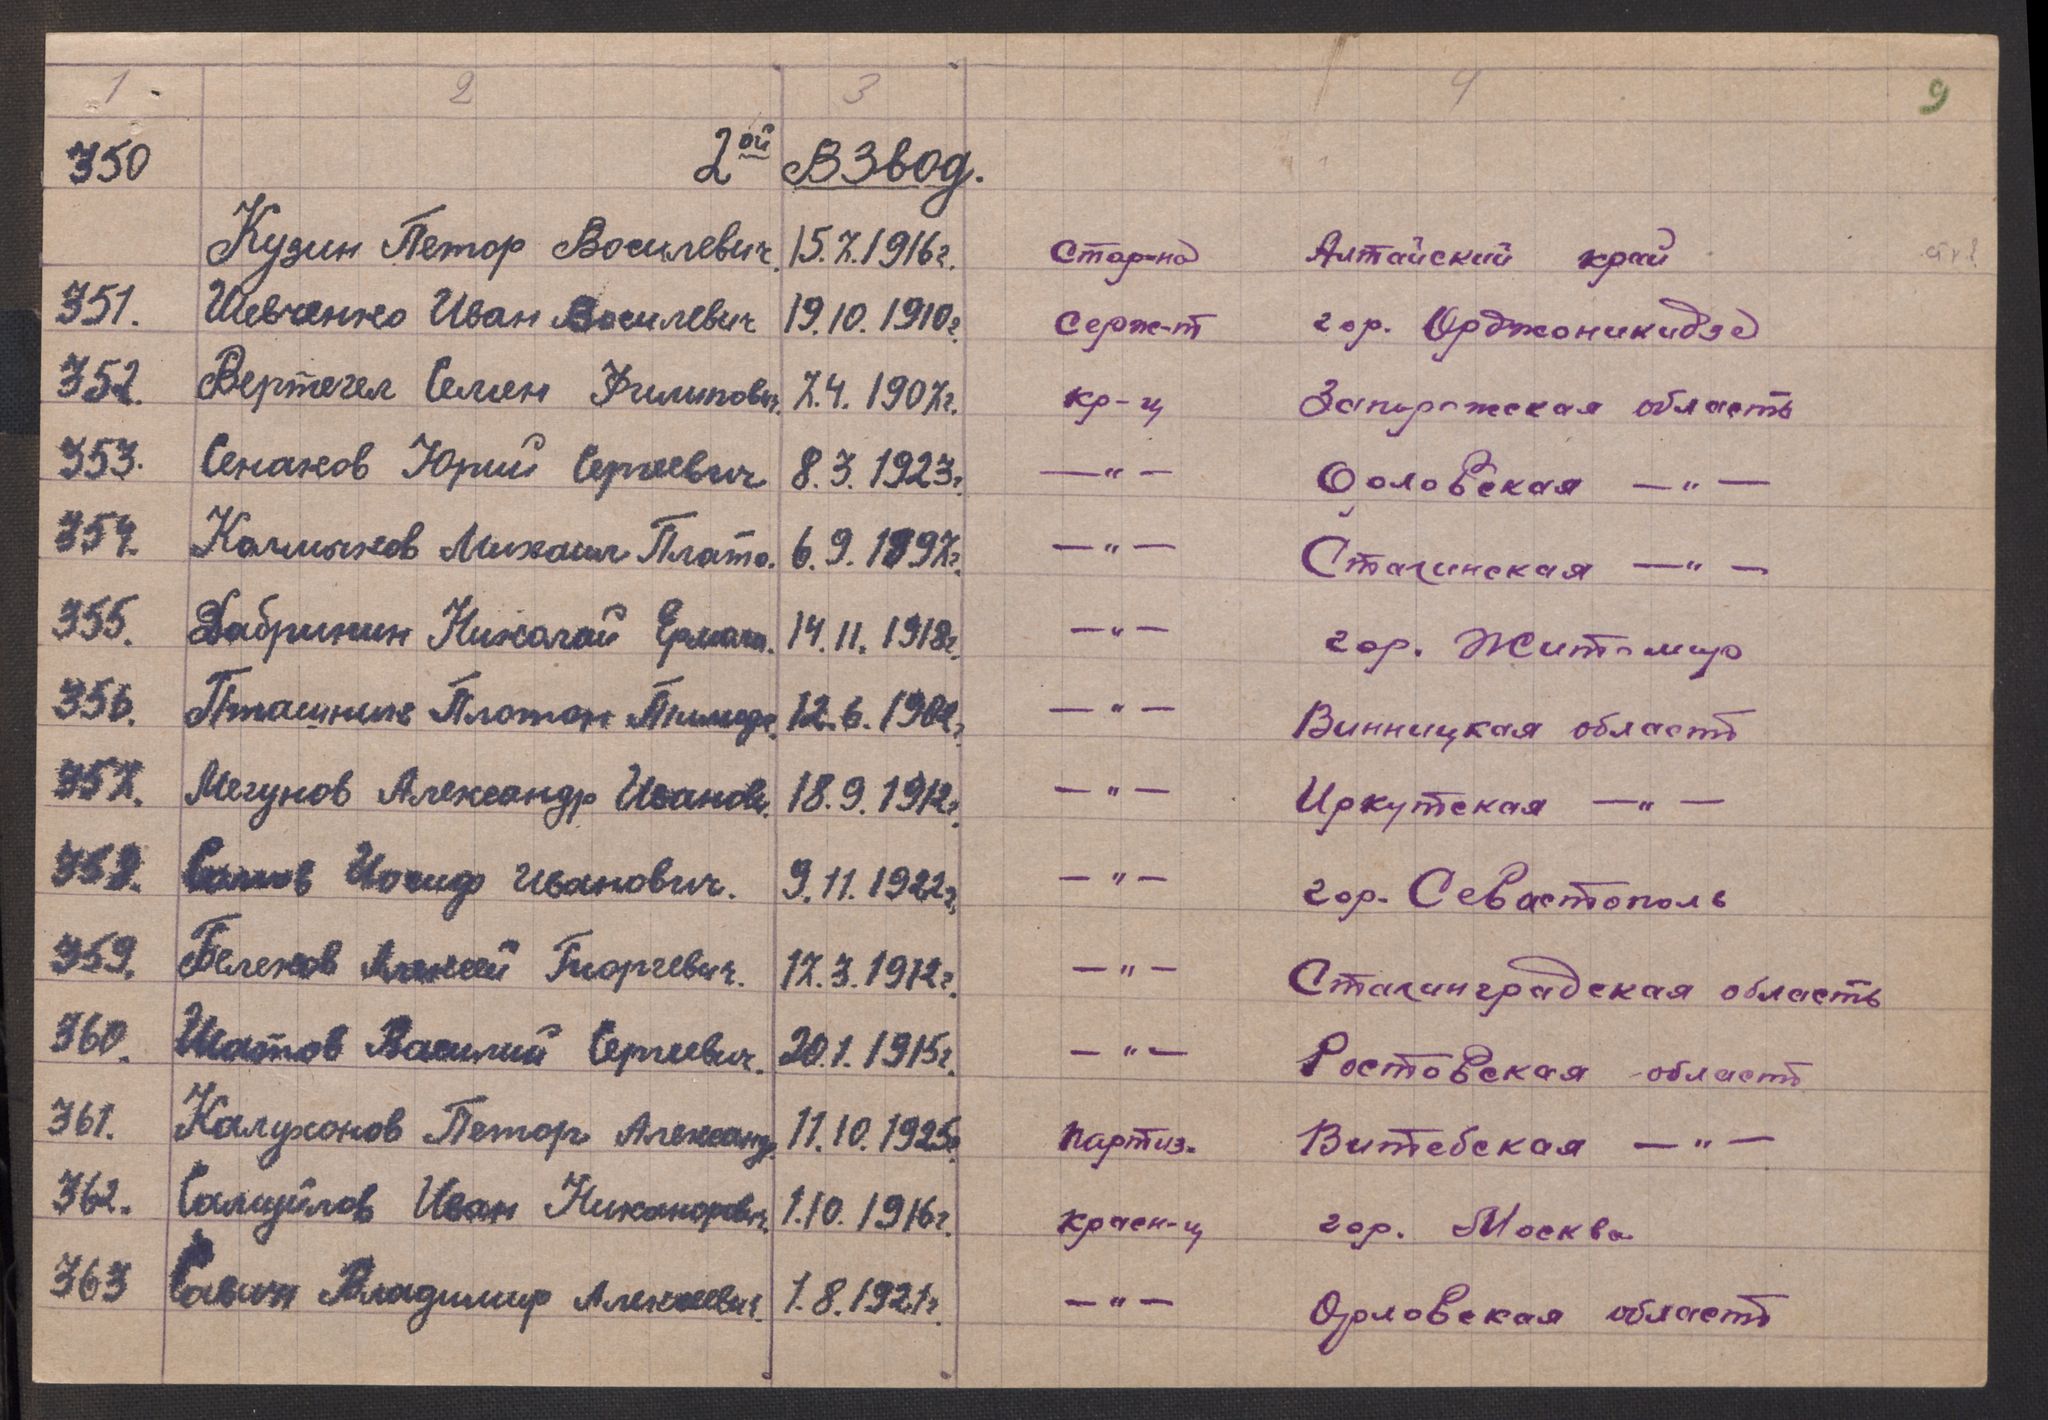 1 2 3 4 9
350 2ой Взвод.
Кузин Петор Василевич. 15.7.1916г. Стар-на Алтайский край
351. Шевченко Иван Василевич 19.10.1910г. Серж-т гор. Орджоникидзе
352. Вертегел Семен Филипович. 7.4.1907г. кр-ц Запорожская область
353. Сенаков Юрий Сергеевич 8.3.1923г. —"— Орловская —"—
354. Калмыков Михаил Плато. 6.9.1897г. —"— Сталинская —"—
355. Дабринин Николай Ермола. 14.11.1918г. —"— гор. Житомир
356. Пташник Платон 12.6.1902г. —"— Винницкая область
357. Мегунов Александр Иванов. 18.9.1912г. —"— Иркутская —"—
358. Иосиф Иванович. 9.11.1922г. —"— гор. Севастополь
359. Белеков Алексей Гиоргевич. 17.3.1912г. —"— Сталинградская область
360. Шатов Василий Сергеевич. 20.1.1915г. —"— Ростовская область
361. Калуханов Петор Александ. 11.10.1925г. партиз. Витебская —"—
362. Самуйлов Иван Никанорович. 1.10.1916г. красн-ц гор. Москва
363 Савин Владимир Алексеевич. 1.8.1921г. —"— Орловская область